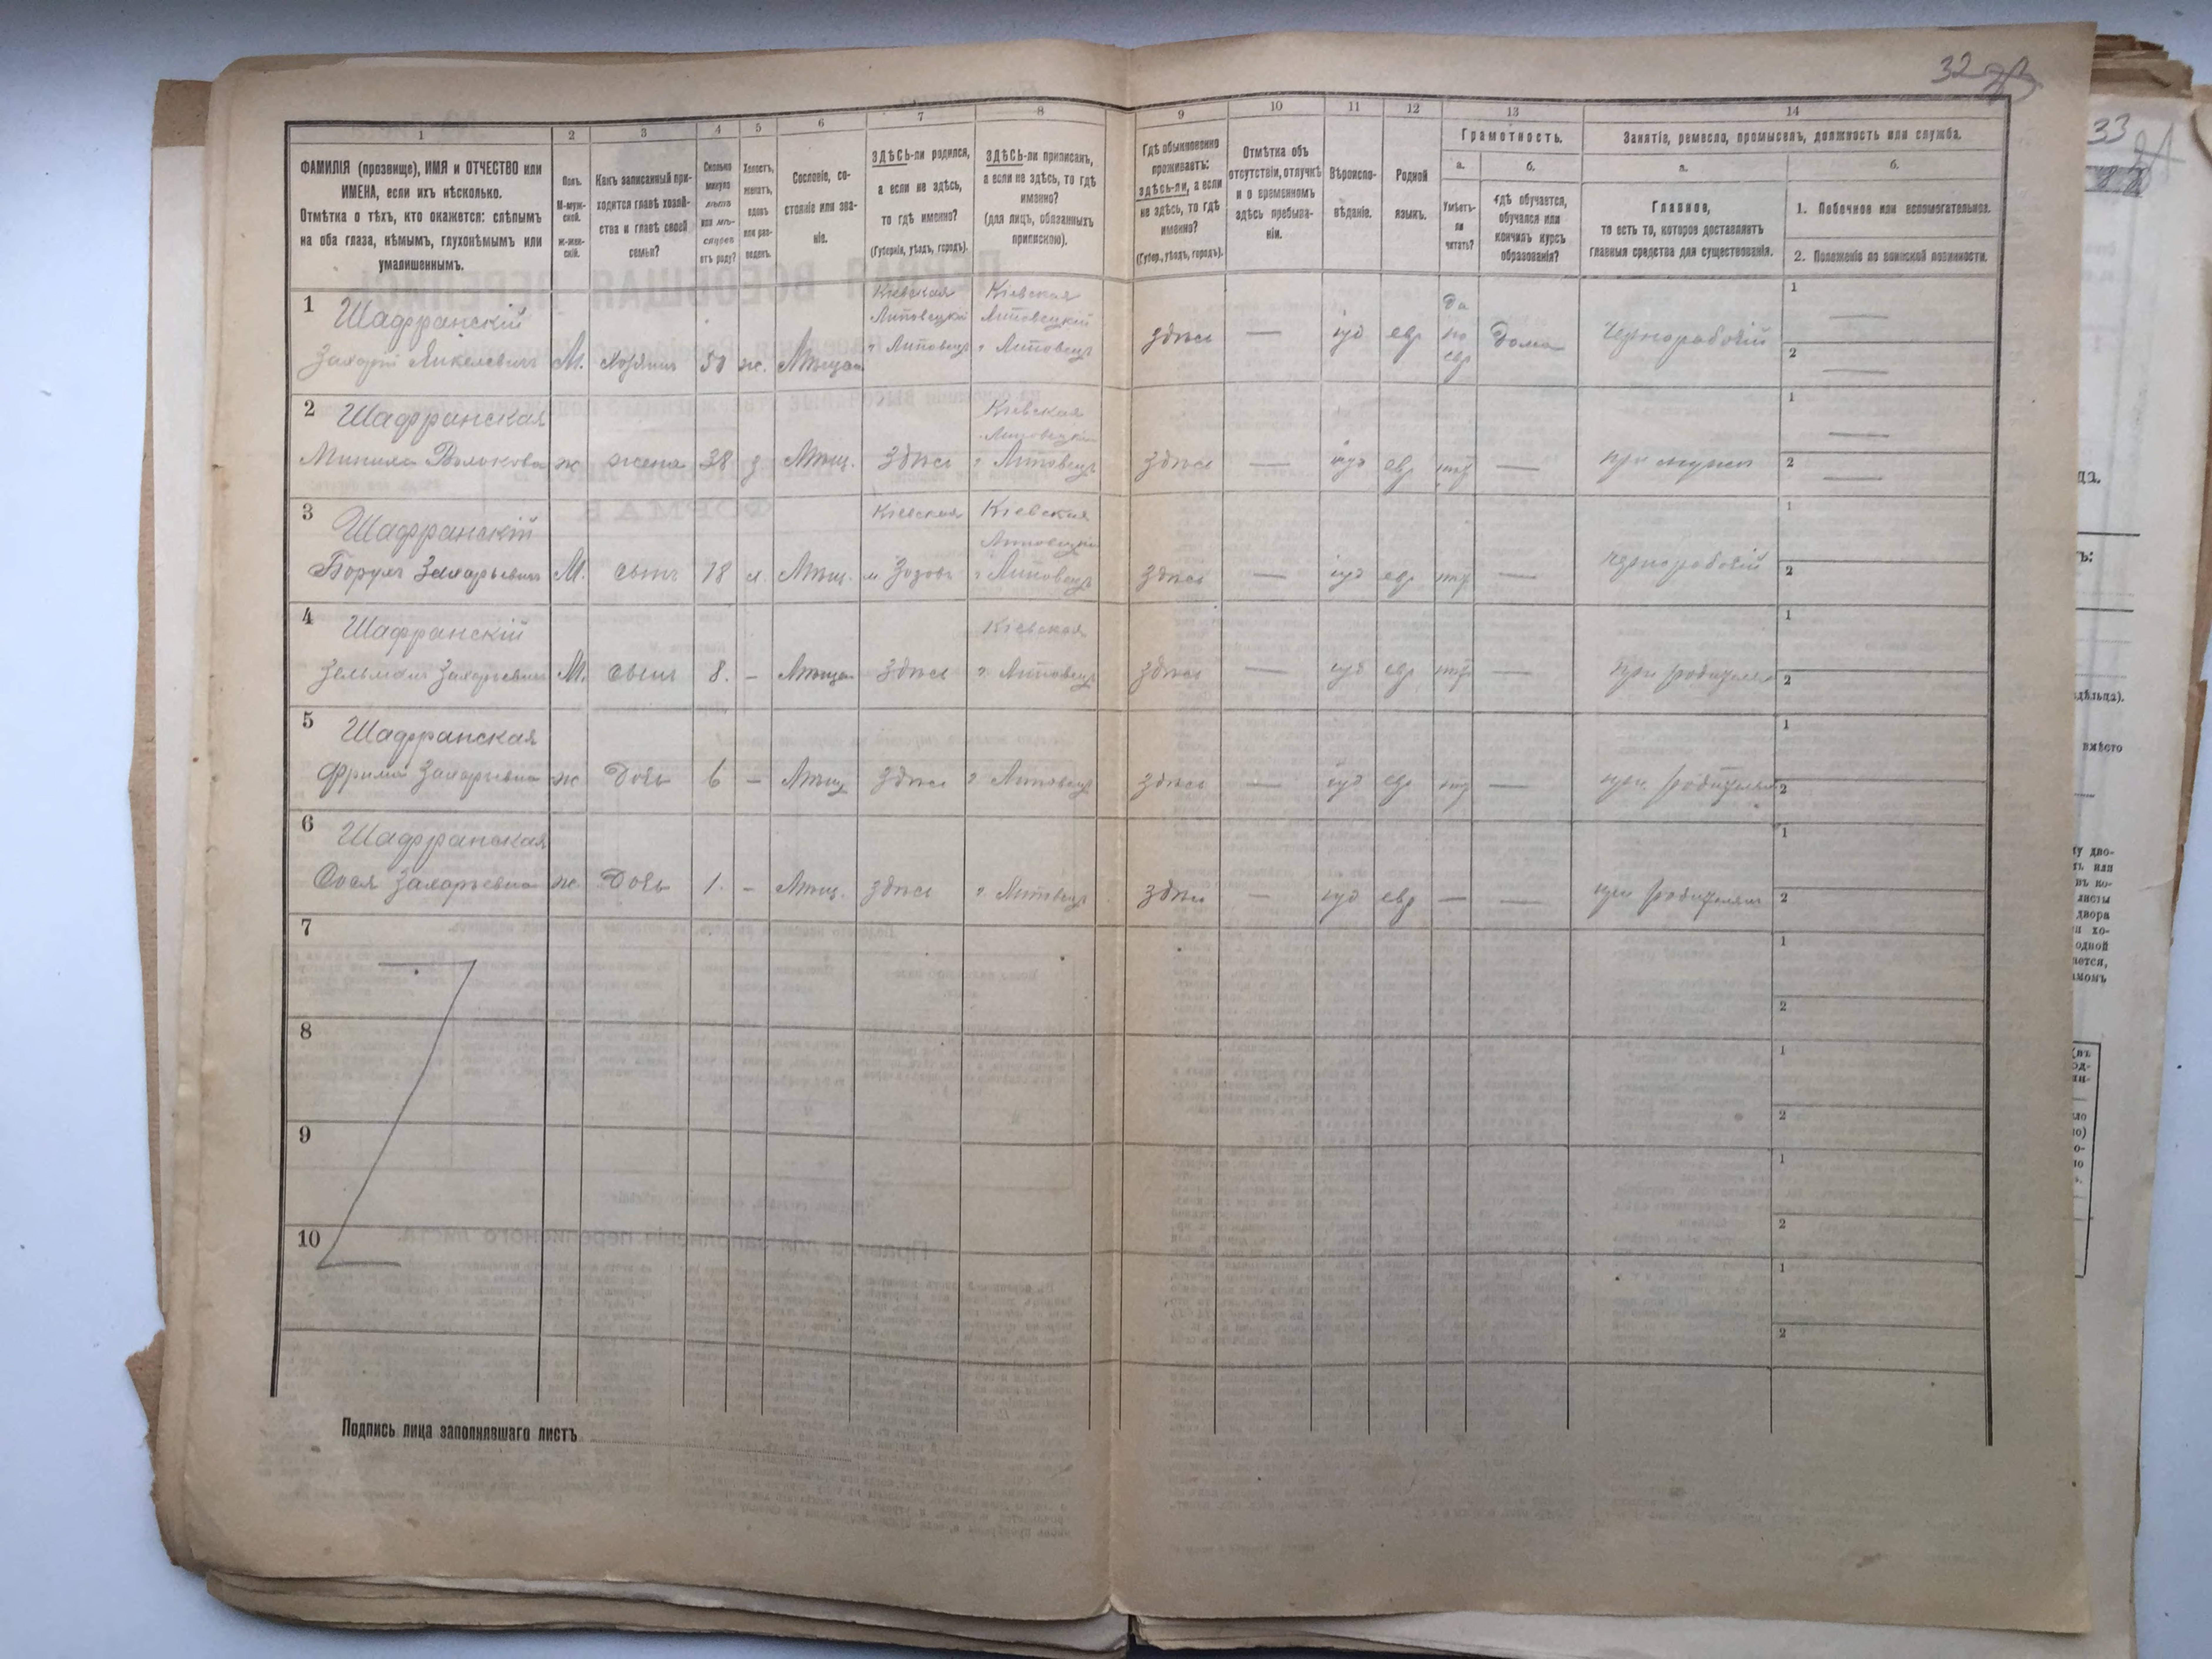 32
1 2 3 4 5 6 7 8 9 10 11 12 13 14
ФАМИЛІЯ (прозвище), ИМЯ и ОТЧЕСТВО или
ИМЕНА, если ихъ нѣсколько.
Отмѣтка о тѣхъ, кто окажется: слѣпымъ
на оба глаза, нѣмымъ, глухонѣмымъ или
умалишеннымъ.
Полъ.
М-муж-
ской.
Ж-жен-
скій.
Какъ записанный при-
ходится главѣ хозяй-
ства и главѣ своей
семьи?
Сколько
минуло
лѣтъ
или мѣ-
сяцевъ
отъ роду?
Холостъ,
женатъ,
вдовъ
или раз-
веденъ.
Сословіе, со-
стояніе или зва-
ніе.
ЗДѢСЬ-ли родился,
а если не здѣсь,
то гдѣ именно?
(Губернія, уѣздъ, городъ).
ЗДѢСЬ-ли приписанъ,
а если не здѣсь, то гдѣ
именно?
(для лицъ, обязанныхъ
припискою).
Гдѣ обыкновенно
проживаетъ:
здѣсь-ли, а если
не здѣсь, то гдѣ
именно?
(Губер., уѣздъ, городъ).
Отмѣтка объ
отсутствіи, отлучкѣ
и о временномъ
здѣсь пребыва-
ніи.
Вѣроиспо-
вѣданіе.
Родной
языкъ.
Грамотность.
а. б.
Умѣетъ-
ли
читать?
гдѣ обучается,
обучался или
кончилъ курсъ
образованія?
Занятіе, ремесло, промыселъ, должность или служба.
а. б.
Главное,
то есть то, которое доставляетъ
главныя средства для существованія.
1. Побочное или вспомогательное.
2. Положеніе по воинской повинности.
1 Шафранскій Кіевская Кіевская Да 1
Липовецкій Липовецкій по
г Липовецъ г Липовецъ здѣсь — іуд евр евр Дома Чернорабочій
М. хозяинъ 50 ж. Мѣщан 2
2 Шафранская Кіевская 1
Липовецкій
ж жена 38 з Мѣщ. Здѣсь г Липовецъ здѣсь — іуд евр нѣтъ — при мужѣ 2
3 Шафранскій Кіевская Кіевская 1
Липовецкій
Борухъ Захарьевичъ М. сынъ 18 х. Мѣщ. м Зозовъ г Липовецъ здѣсь — іуд евр нѣтъ — чернорабочій 2
4 Шафранскій Кіевская 1
Зельманъ Захарьевичъ М. сынъ 8. — Мѣщан Здѣсь г. Липовецъ здѣсь — іуд евр нѣтъ — при родителяхъ 2
5 Шафранская 1
Фрима Захарьевна ж Дочь 6 — Мѣщ Здѣсь г Липовецъ здѣсь — іуд евр нѣтъ — при родителяхъ 2
6 Шафранская 1
Сося Захарьевна ж Дочь 1. — Мѣщ. здѣсь г. Липовецъ здѣсь — іуд евр — — при родителяхъ 2
7 1
2
8 1
2
9 1
2
10 1
2
Подпись лица заполнявшаго листъ
33